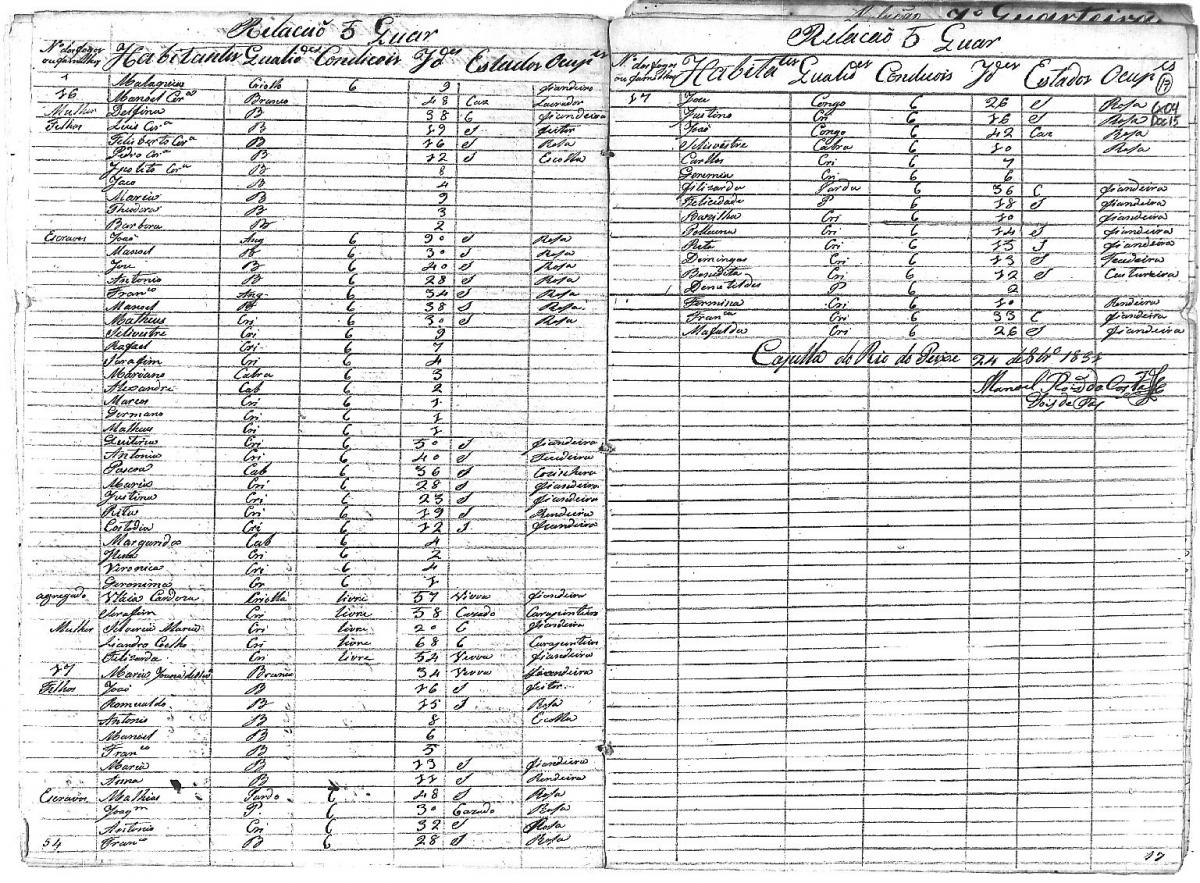 Relação 5 Guar
Nº dos fogos ou famílias Habitantes Qualides Condicois Jdes Estados Ocupes
Malaquias Criollo C 9 fiandeiro
16 Manoel Corª Branco 48 Caz Lavrador
Mulher Delfina B 38 C fiandeira
Filhos Luis Corª B 19 S feitor
Felisberto Corª B 16 S Rosa
Pedro Corª B 12 S Escolla
Ypolito Corª B 8
Jaco B 4
Maria B 9
Theodora B 3
Barbora B 2
Escravos João Ang C 90 S Rosa
Manoel B C 30 S Rosa
Joze B C 40 S Rosa
Antonio B C 28 S Rosa
Franco Ang C 34 S Rosa
Manoel B C 38 S Rosa
Matheus Cri C 30 S Rosa
Selivestre Cri C 9
Rafael Cri C 7
Sarafim Cri C 4
Mariano Cabra C 3
Alexandre Cab C 2
Marcos Cri C 1
Germano Cri C 1
Matheus Cri C 1
Quiteria Cri C 50 S fiandeira
Antonia Cri C 40 S Tecedeira
Pascoa Cab C 36 S Cozinheira
Maria Cri C 28 S fiandeira
Justina Cri C 23 S fiandeira
Rita Cri C 19 S Rendeira
Custodia Cri C 12 S fiandeira
Margarida Cab C 4
Cri C 2
Veronica Cri C 4
Geronima Cr C 1
agregado Cardoza Criolla livre 57 Viuva fiandeira
Serafim Cri livre 38 Cazado Carapinteiro
Mulher Maria Cri livre 20 C fiandeira
Liandro Coelho Cri livre 68 C Carapinteiro
Felizarda Cri livre 54 Viuva fiandeira
17 Maria Joana Branca 34 Viuva fiandeira
Filhos João B 16 S feitor
Romualdo B 15 S Rosa
Antonio B 8 Escolla
Manoel B 6
Franco B 5
Maria B 13 S fiandeira
Anna B 11 S Rendeira
Escravos Mathias Pardo C 48 S Rosa
Joaqm P C 30 Cazado Rosa
Antonio Cri C 32 S Rosa
54 Franco B C 28 S Rosa
Relação 7º Quarteirão
Relacaõ 5 Guar
Nº dos fogos ou famílias Habitaes Qualides Condicois Jdes Estados Ocupes
17
17 Joze Congo C 26 S Rosa
Justino Cri C 16 S Rosa
João Congo C 42 Caz Rosa
Selivestre Cabra C 10 Rosa
Carllos Cri C 7
Geremia Cri C 6
Filizarda Parda C 36 C fiandeira
Felicidade P C 18 S fiandeira
Bazilha Cri C 10 fiandeira
Cri C 14 S fiandeira
Rita Cri C 13 S fiandeira
Domingas Cri C 13 S Tecedeira
Benedita Cri C 12 S Custureira
P C 2
Fermina Cri C 10 Rendeira
Franca Cri C 33 C fiandeira
Mafalda Cri C 26 S fiandeira
Capella do Rio do Peixe 24 de 8brº 1831
Manoel da Costa
Juis de Pas
17